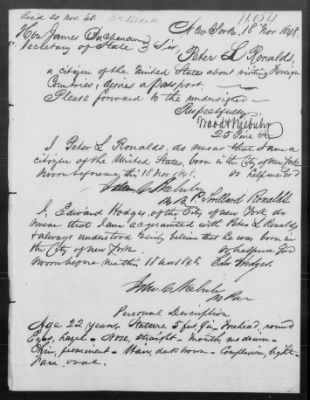 Recd 20 Nov 48.
11,054
New York 18 Nov 1848.
Hon James Buchanan
Secretary of State } Sir
Peter L Ronalds,
a citizen of the United States about visiting Foreign
Countries, desires a passport.
Please forward to the undersigned
Respectfully
25 Pine St
I, Peter L. Ronalds, do swear that I am a
citizen of the United States, born in the City of New York
So help me God
Sworn before me this 18 Nov 1848.
P. Lorillard Ronalds
I, Edward Hodges of the City of New York do
swear that I am acquainted with Peter L. Ronalds
& always understood & verily believe that he was born in
the City of New York
So help me God
Sworn before me this 18 Nov 1848
Edw Hodges.
Personal Description
Age 22 years. Stature 5 feet Forehead, round
Eyes, hazel - Nose, straight - Mouth, medium -
Chin, prominent - Hair, dark brown - Complexion, light -
Face oval.